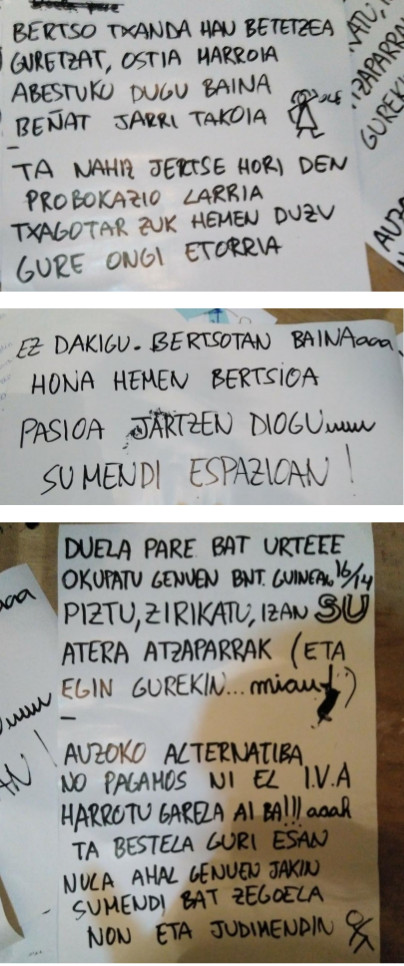 BERTSO TXANDA HAU BETETZEA
GURETZAT, OSTIA MARROIA
ABESTUKO DUGU BAINA
BEÑAT JARRI TAKOIA
OLE
TA NAHIZ JERTSE HORI DEN
PROBOKAZIO LARRIA
TXAGOTAR ZUK HEMEN DUZU
GURE ONGI ETORRIA
EZ DAKIGU. BERTSOTAN BAINAaaa.
HONA HEMEN BERTSIOA
PASIOA JARTZEN DIOGUuuuu
SUMENDI ESPAZIOAN!
DUELA PARE BAT URTEEE
OKUPATU GENUEN BNT. GUINEAN 16/14
PIZTU, ZIRIKATU, IZAN SU
ATERA ATZAPARRAK (ETA
EGIN GUREKIN... miau!)
AUZOKO ALTERNATIBA
NO PAGAMOS NI EL I.V.A
HARROTU GARELA AI BA!!! aaah
TA BESTELA GURI ESAN
NOLA AHAL GENUEN JAKIN
SUMENDI BAT ZEGOELA
NON ETA JUDIMENDIN